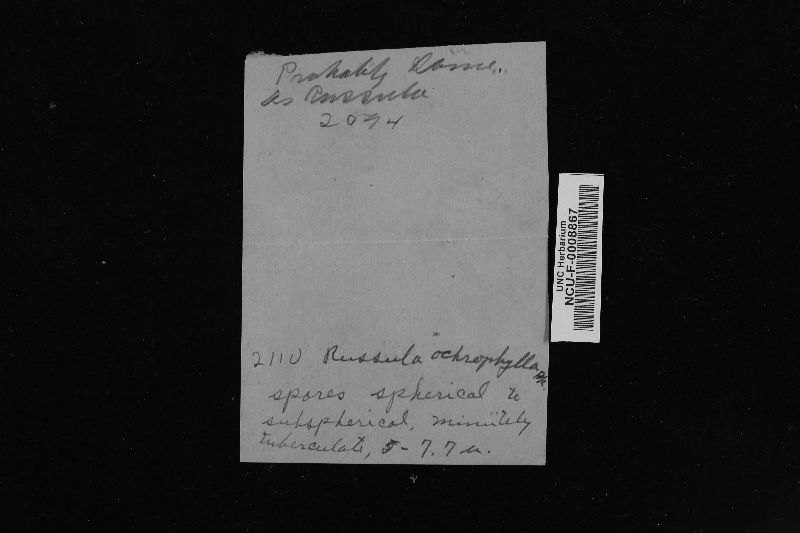 Probably Same
as Russula
2094
2110 Russula ochrophylla Pk.
spores spherical to
subspherical, minutely
tuberculate, 5-7.7 u.
UNC Herbarium
NCU-F-0008867